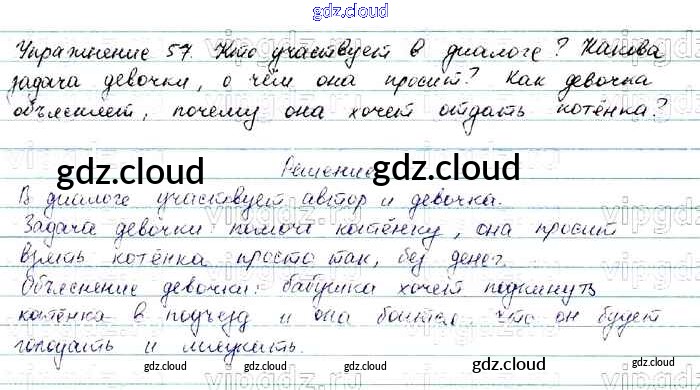 gdz.cloud
Упражнение 57. Кто участвует в диалоге? Какова
задача девочки, о чём она просит? Как девочка
объясняет, почему она хочет отдать котёнка?
gdz.cloud
gdz.cloud
Решение
В диалоге участвует автор и девочка.
Задача девочки помочь котёнку, она просит
взять котёнка просто так, без денег.
Объяснение девочки: бабушка хочет подкинуть
котёнка в подъезд и она боится что он будет
голодать и мяукать.
gdz.cloud gdz.cloud gdz.cloud gdz.cloud